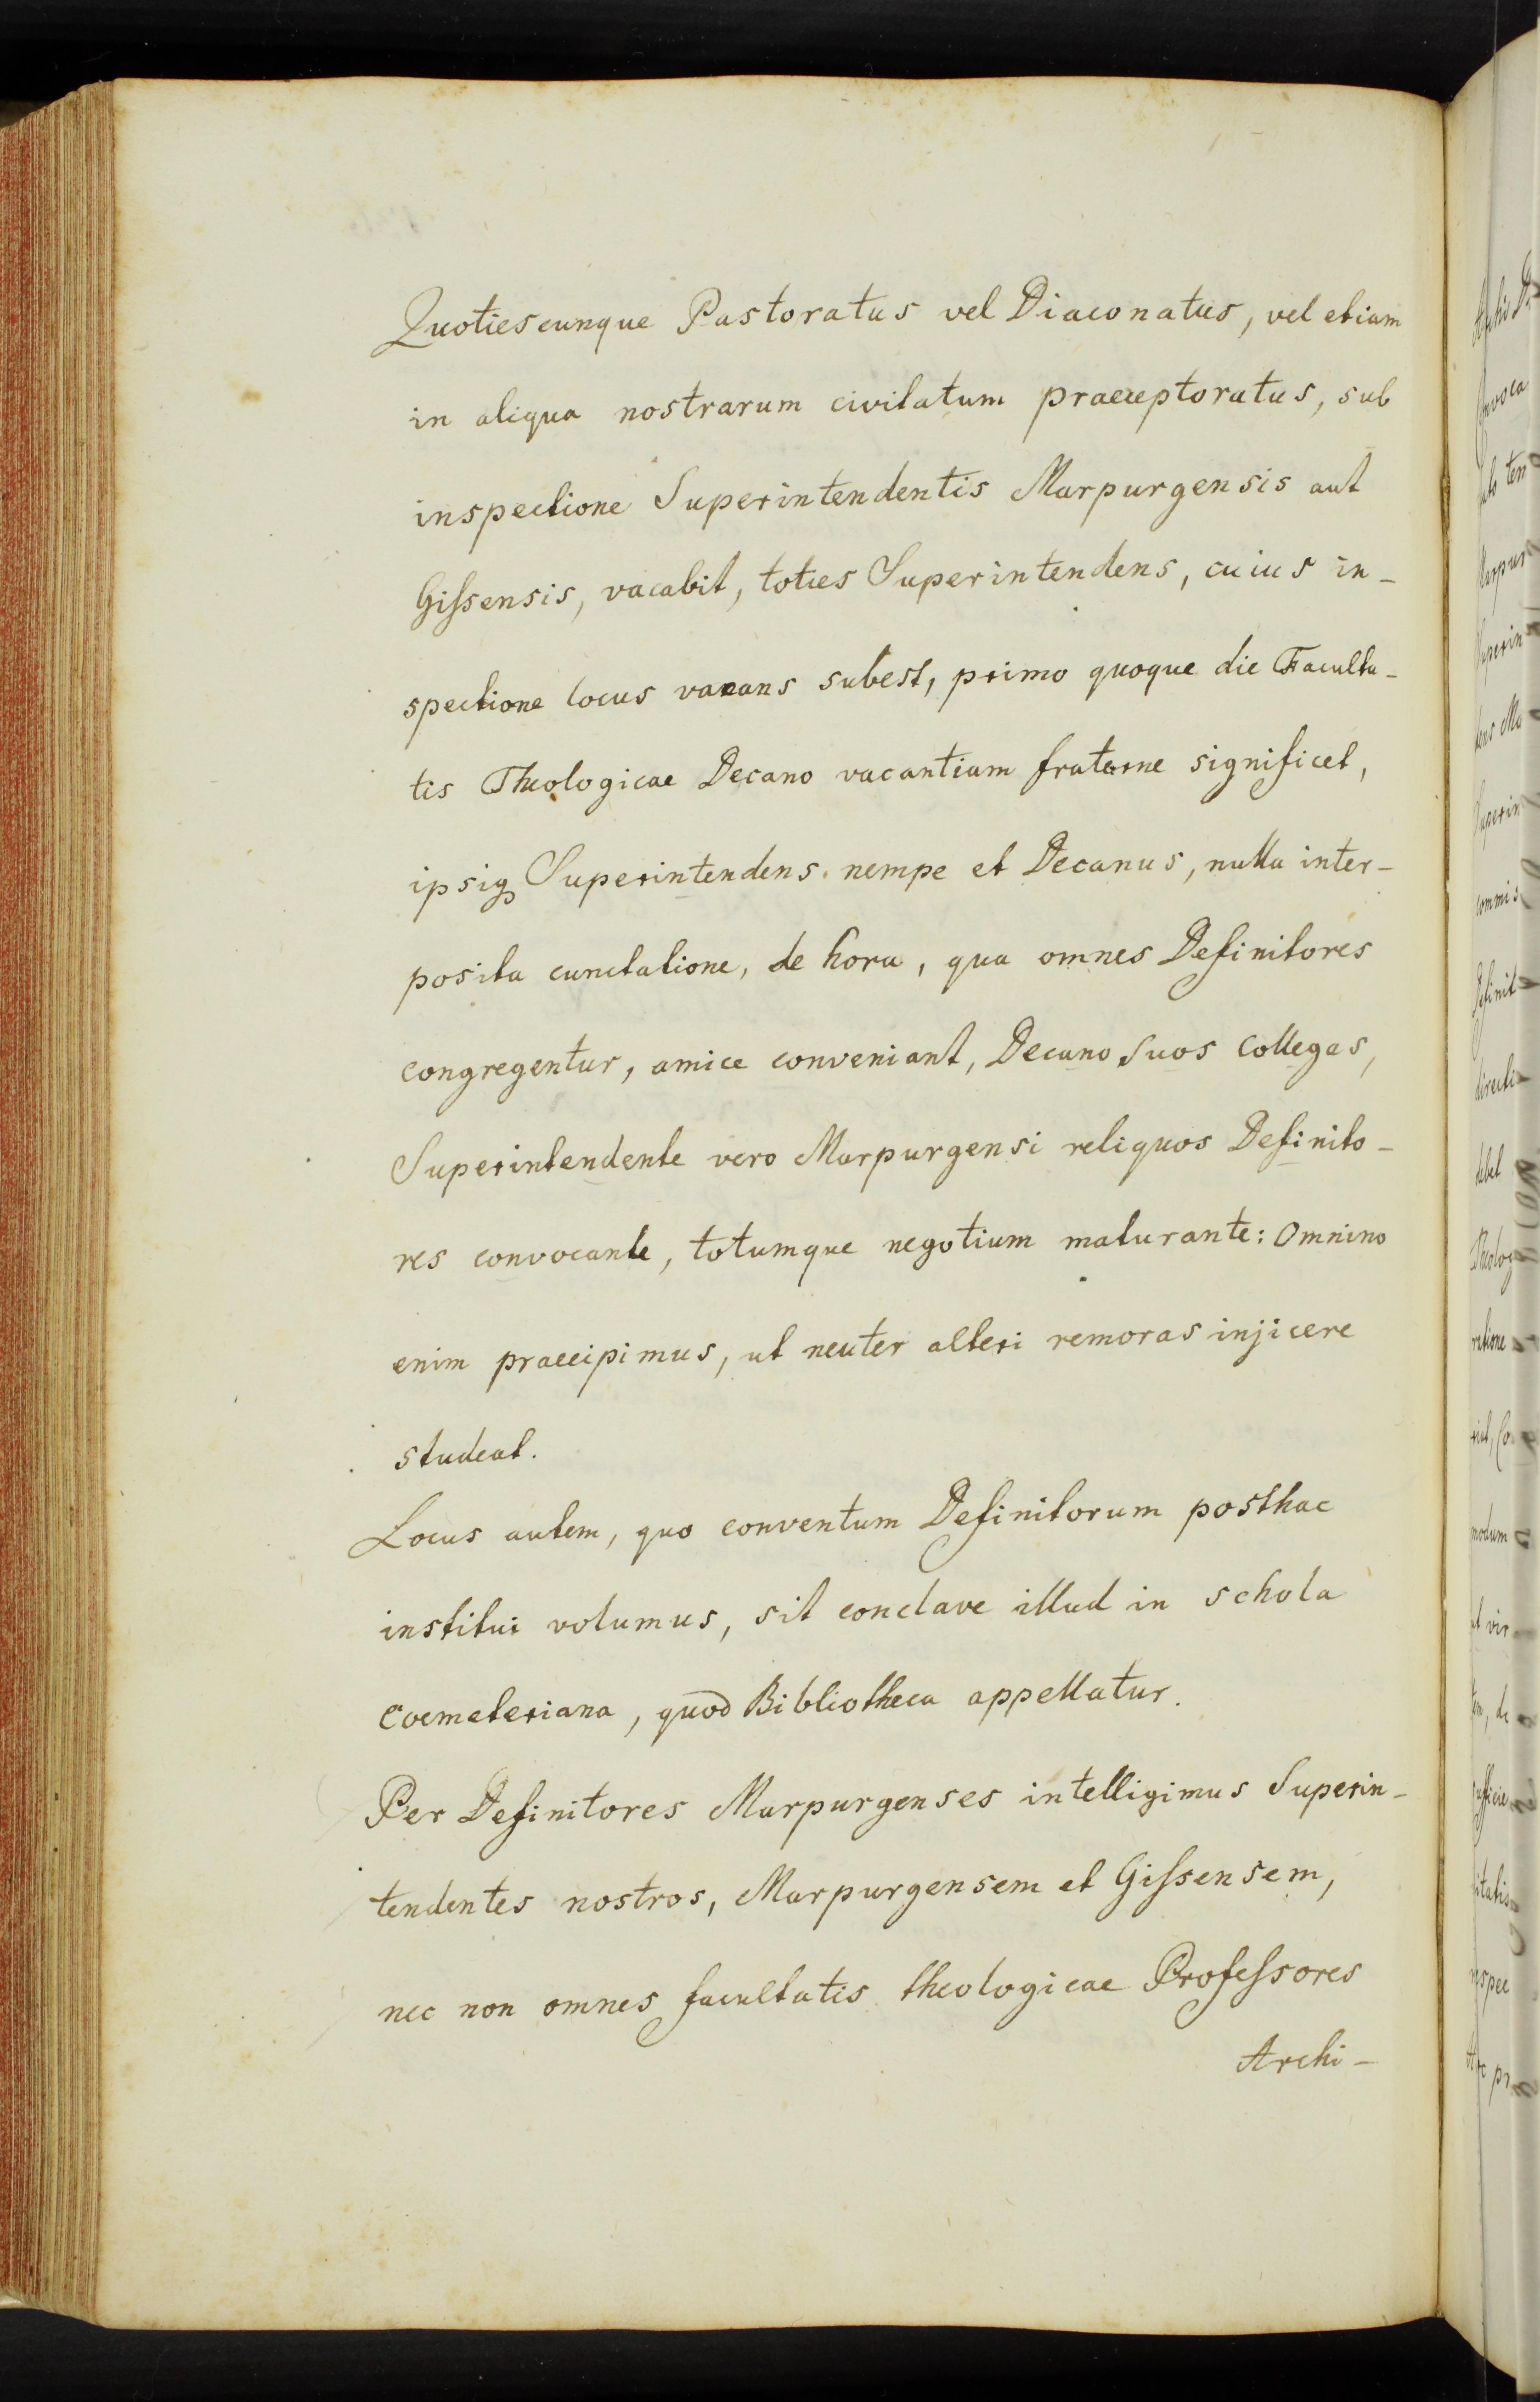 Quotiescunque Pastoratus vel Diaconatus, vel etiam
in aliqua nostrarum civitatum praeceptoratus, sub
inspectione Superintendentis Marpurgensis aut
Giſsensis, vacabit, toties Superintendens, cuius in-
spectione locus vacans subest, primo quoque die Faculta-
tis Theologicae Decano vacantiam fraterne significet,
ipsiq Superintendens nempe et Decanus, nulla inter-
posita cunctatione, de hora, qua omnes Definitores
congregentur, amice conveniant, Decano suos collegas,
Superintendente vero Marpurgensi reliquos Definito-
res convocante, totumque negotium maturante: Omnino
enim praecipimus, ut neuter alteri remoras injicere
studeat.
Locus autem, quo conventum Definitorum posthac
institui volumus, sit conclave illud in schola
coemeteriana, quod Bibliotheca appellatur.
Per Definitores Marpurgenses intelligimus Superin-
tendentes nostros, Marpurgensem et Giſsensem,
nec non omnes facultatis theologicae Profeſsores
Archi-